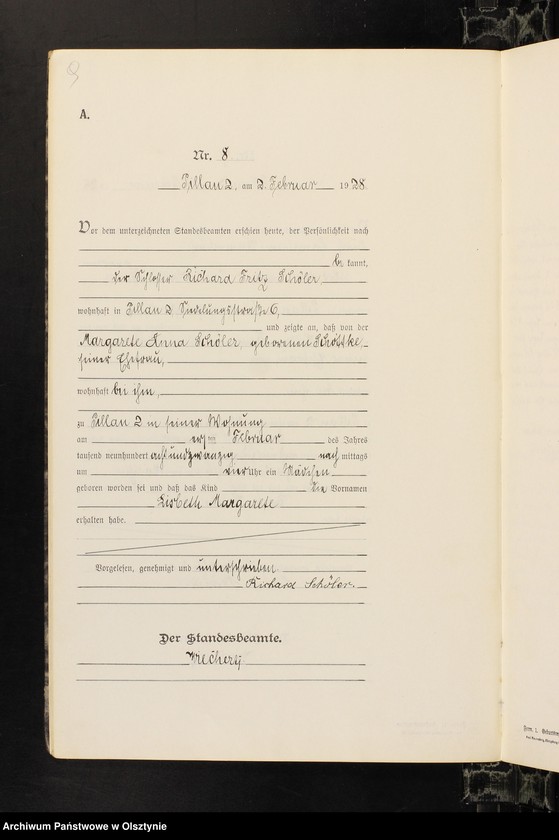 A.
Nr. 8
Pillau 2, am 2. Februar 1928
Vor dem unterzeichneten Standesbeamten erschien heute, der Persönlichkeit nach
be kannt,
der Schlosser Richard Fritz Schöler
wohnhaft in Pillau 2 Siedelungsstraße 6,
und zeigte an, daß von der
Margarete Anna Schöler, geborenen Schöttke
seiner Ehefrau,
wohnhaft bei ihm,
zu Pillau 2 in seiner Wohnung
am ersten Februar des Jahres
tausend neunhundert achtundzwanzig nach mittags
um vier Uhr ein Mädchen
geboren worden sei und daß das Kind die Vornamen
Lisbeth Margarete
erhalten habe.
Vorgelesen, genehmigt und unterschrieben
Richard Schöler.
Der Standesbeamte.
Archiwum Państwowe w Olsztynie